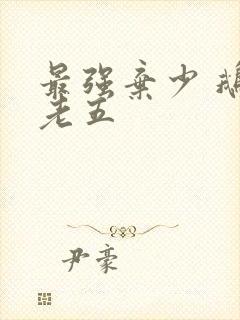 最强弃少 鹅
老五
尹豪